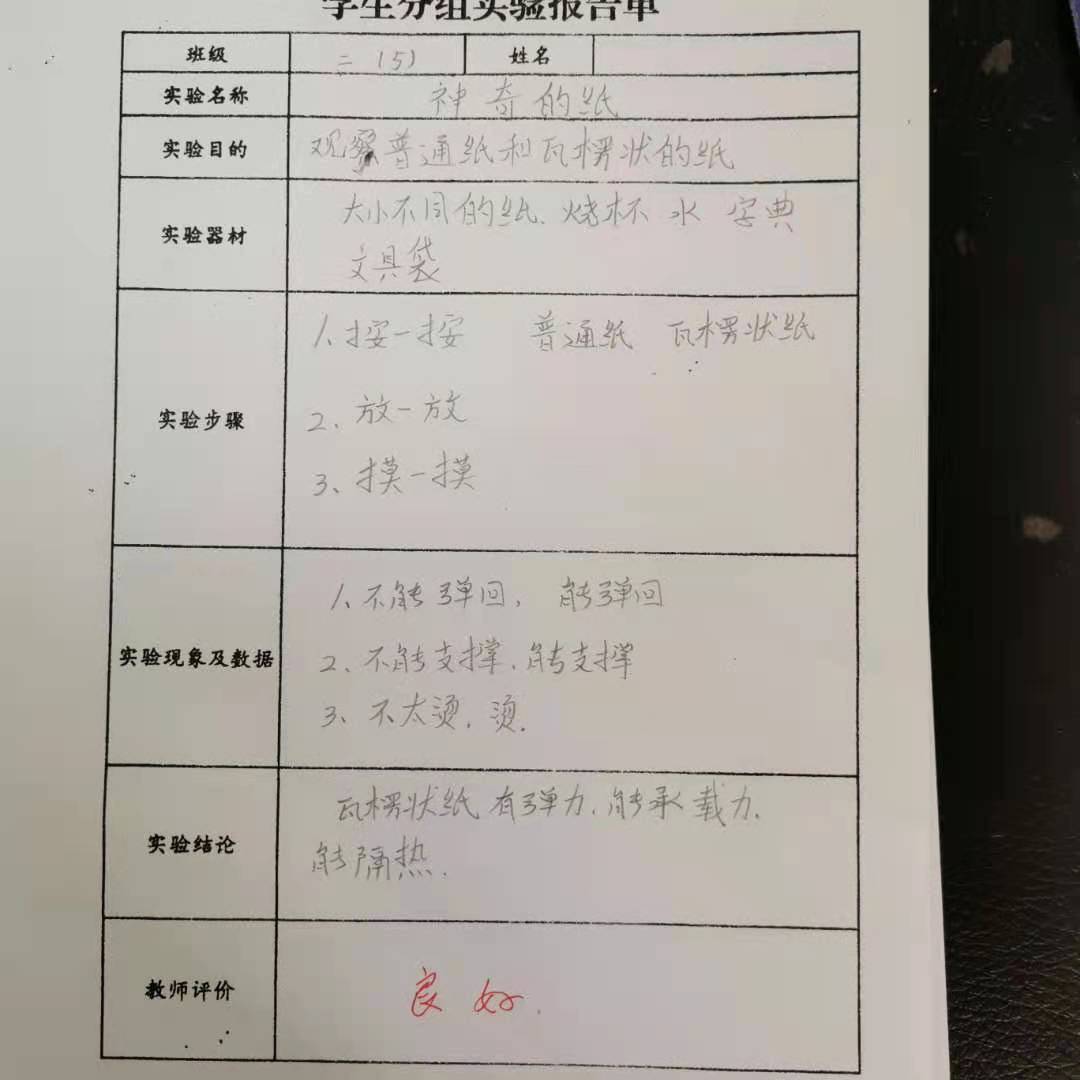 学生分组实验报告单
班级 二（5） 姓名
实验名称 神奇的纸
实验目的 观察普通纸和瓦楞状的纸
实验器材 大小不同的纸、烧杯 水 字典
文具袋
实验步骤
1、按一按 普通纸 瓦楞状纸
2、放一放
3、摸一摸
实验现象及数据
1、不能弹回, 能弹回
2、不能支撑、能支撑
3、不太烫、烫.
实验结论
瓦楞状纸有弹力、能承载力、
能隔热.
教师评价 良好.